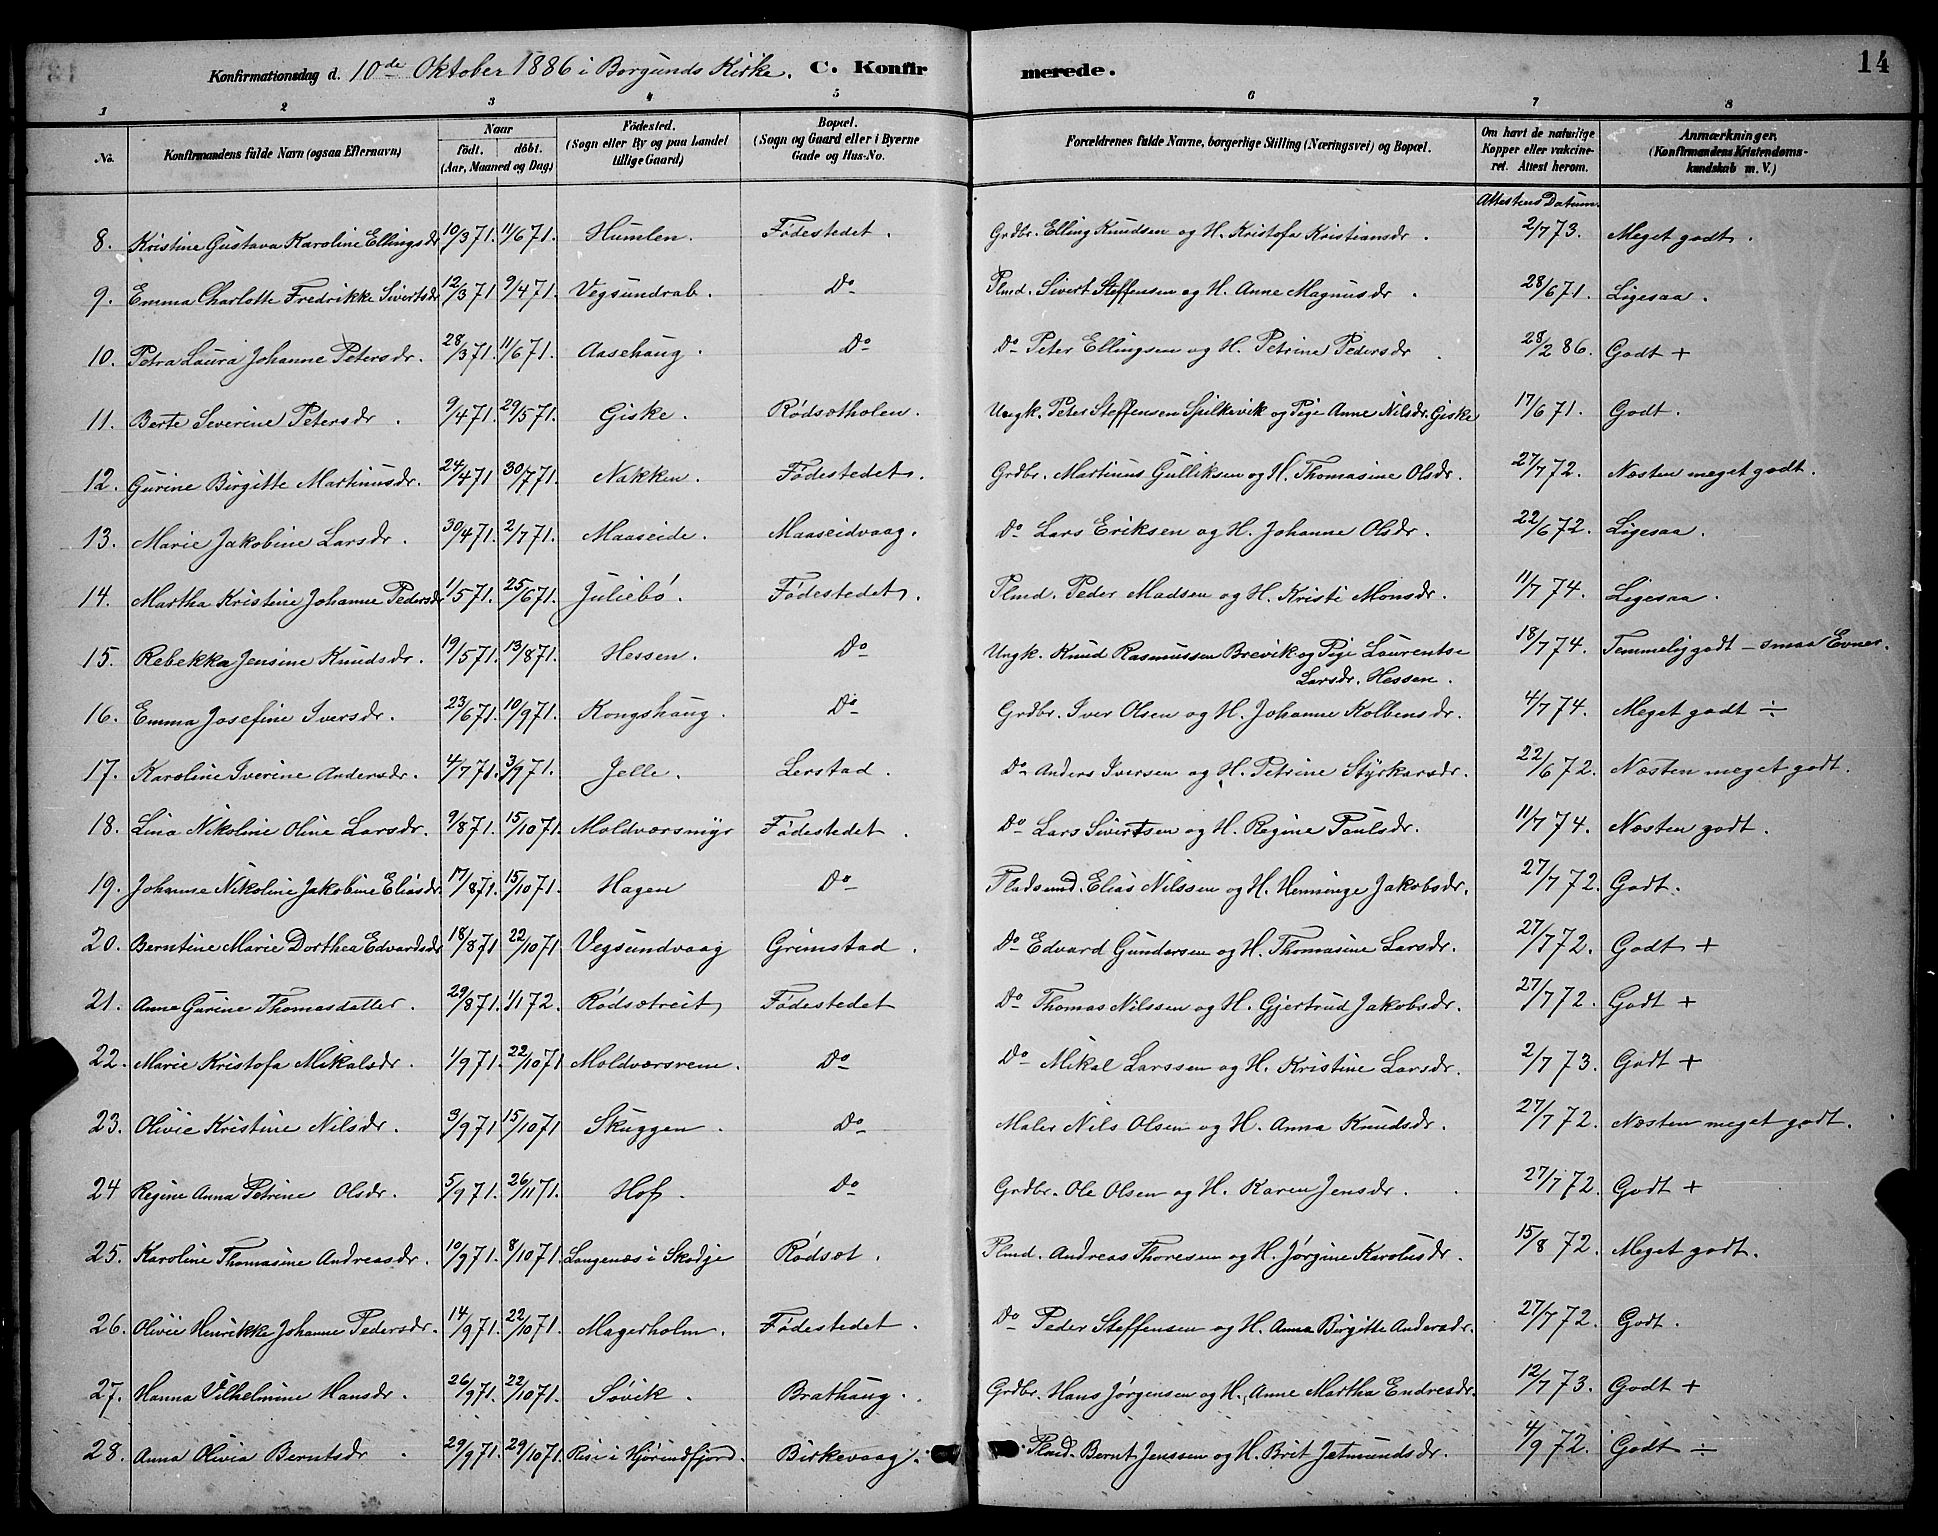 Konfirmationsdag d. 10de Oktober 1886 i Borgunds Kirke. C. Konfirmerede. 14
1 2 3 4 5 6 7 8
No. Konfirmandens fulde Navn (ogsaa Efternavn) Naar födt, döbt. (Aar, Maaned og Dag) Födested. (Sogn eller By og paa Landet tillige Gaard) Bopæl. (Sogn og Gaard eller i Byerne Gade og Hus-No. Forældrenes fulde Navne, borgerlige Stilling (Næringsvei) og Bopæl. Om havt de naturlige Kopper eller vakcineret. Attest herom. Anmærkninger. (Konfirmandens Kristendomskundskab m. V.)
Attestens Datum.
8. Kristine Gustava Karoline Ellingsdr 10/3 71. 11/6 71. Humlen. Fødestedet. Grdbr. Elling Knudsen og H. Kristofa Kristiansdr. 2/7 73. Meget godt.
9. Emma Charlotte Fredrikke Sivertsdr 12/3 71 9/4 71. Vegsundrab. Do Plmd. Sivert Steffensen og H. Anne Magnusdr. 28/6 71. Ligesaa.
10. Petra Laura Johanne Petersdr. 28/3 71. 11/6 71. Aasehaug. Do Do Peter Ellingsen og H. Petrine Pedersdr. 28/2 86. Godt +
11. Berte Severine Petersdr. 9/4 71. 29/5 71. Giske. Rødsætholen. Ungk. Peter Steffensen Spilkevik og Pige Anne Nilsdr. Giske 17/6 71. Godt.
12. Gurine Birgitte Martinusdr. 24/4 71 30/7 71. Nakken. Fødestedet. Grdbr. Martinus Gulliksen og H. Thomasine Olsdr. 27/7 72. Næsten meget godt.
13. Marie Jakobine Larsdr. 30/4 71. 2/7 71. Maaseide. Maaseidvaag. Do Lars Eriksen og H. Johanne Olsdr. 22/6 72. Ligesaa.
14. Martha Kristine Johanne Pedersdr 1/5 71. 25/6 71. Juliebø. Fødestedet. Plmd. Peder Madsen og H. Kristi Monsdr. 11/7 74. Ligesaa.
15. Rebekka Jensine Knudsdr. 19/5 71. 13/8 71. Hessen. Do Ungk. Knud Rasmussen Brevik og Pige Laurentse 18/7 74. Temmelig godt – smaa Evner.
Larsdr. Hessen.
16. Emma Josefine Iversdr. 23/6 71. 10/9 71. Kongshaug. Do Grdbr. Iver Olsen og H. Johanne Kolbensdr. 4/7 74. Meget godt ÷
17. Karoline Iverine Andersdr. 4/7 71. 3/9 71. Jelle. Lerstad. Do Anders Iversen og H. Petrine Styrkarsdr. 22/6 72. Næsten meget godt.
18. Lina Nikoline Oline Larsdr. 9/8 71. 15/10 71. Moldværsmyr Fødestedet. Do Lars Sivertsen og H. Regine Poulsdr. 11/7 74. Næsten godt.
19. Johanne Nikoline Jakobine Eliasdr. 17/8 71. 15/10 71. Hagen Do Pladsmd. Elias Nilssen og H. Henninge Jakobsdr. 27/7 72. Godt.
20. Berntine Marie Dorthea Edvardsdr 18/8 71 22/10 71 Vegsundvaag Grimstad. Do Edvard Gundersen og H. Thomasine Larsdr. 27/7 72. Godt +
21. Anne Gurine Thomasdatter. 29/8 71. 1/1 72. Rødsætreit Fødestedet Do Thomas Nilssen og H. Gjertrud Jakobsdr. 27/7 72. Godt +
22. Marie Kristofa Mikalsdr. 1/9 71. 22/10 71 Moldværsrem. Do Do Mikal Larssen og H. Kristine Larsdr. 2/7 73. Godt +
23. Olivie Kristine Nilsdr. 3/9 71 15/10 71 Skuggen. Do Maler Nils Olsen og H. Anna Knudsdr. 27/7 72. Næsten meget godt.
24 Regine Anna Petrine Olsdr. 5/9 71. 26/11 71. Hof. Do Grdbr. Ole Olsen og H. Karen Jensdr. 27/7 72. Godt +
25. Karoline Thomasine Andreasdr. 10/9 71. 8/10 71. Langenæs i Skodje Rødsæt. Plmd. Andreas Thoresen og H. Jørgine Karolusdr. 15/8 72. Meget godt.
26. Olivie Henrikke Johanne Pedersdr. 14/9 71. 22/10 71. Magerholm. Fødestedet. Do Peder Steffensen og H. Anna Birgitte Andersdr. 27/7 72. Godt.
27. Hanna Vilhelmine Hansdr. 26/9 71. 22/10 71. Søvik. Brathaug. Grdbr. Hans Jørgensen og H. Anne Martha Endresdr. 12/7 73. Godt +
28. Anna Olivia Berntsdr. 29/9 71. 29/10 71. Rise i Hjørindfjord. Birkevaag. Plmd. Bernt Jenssen og H. Brit Jetmundsdr. 4/9 72. Godt ÷